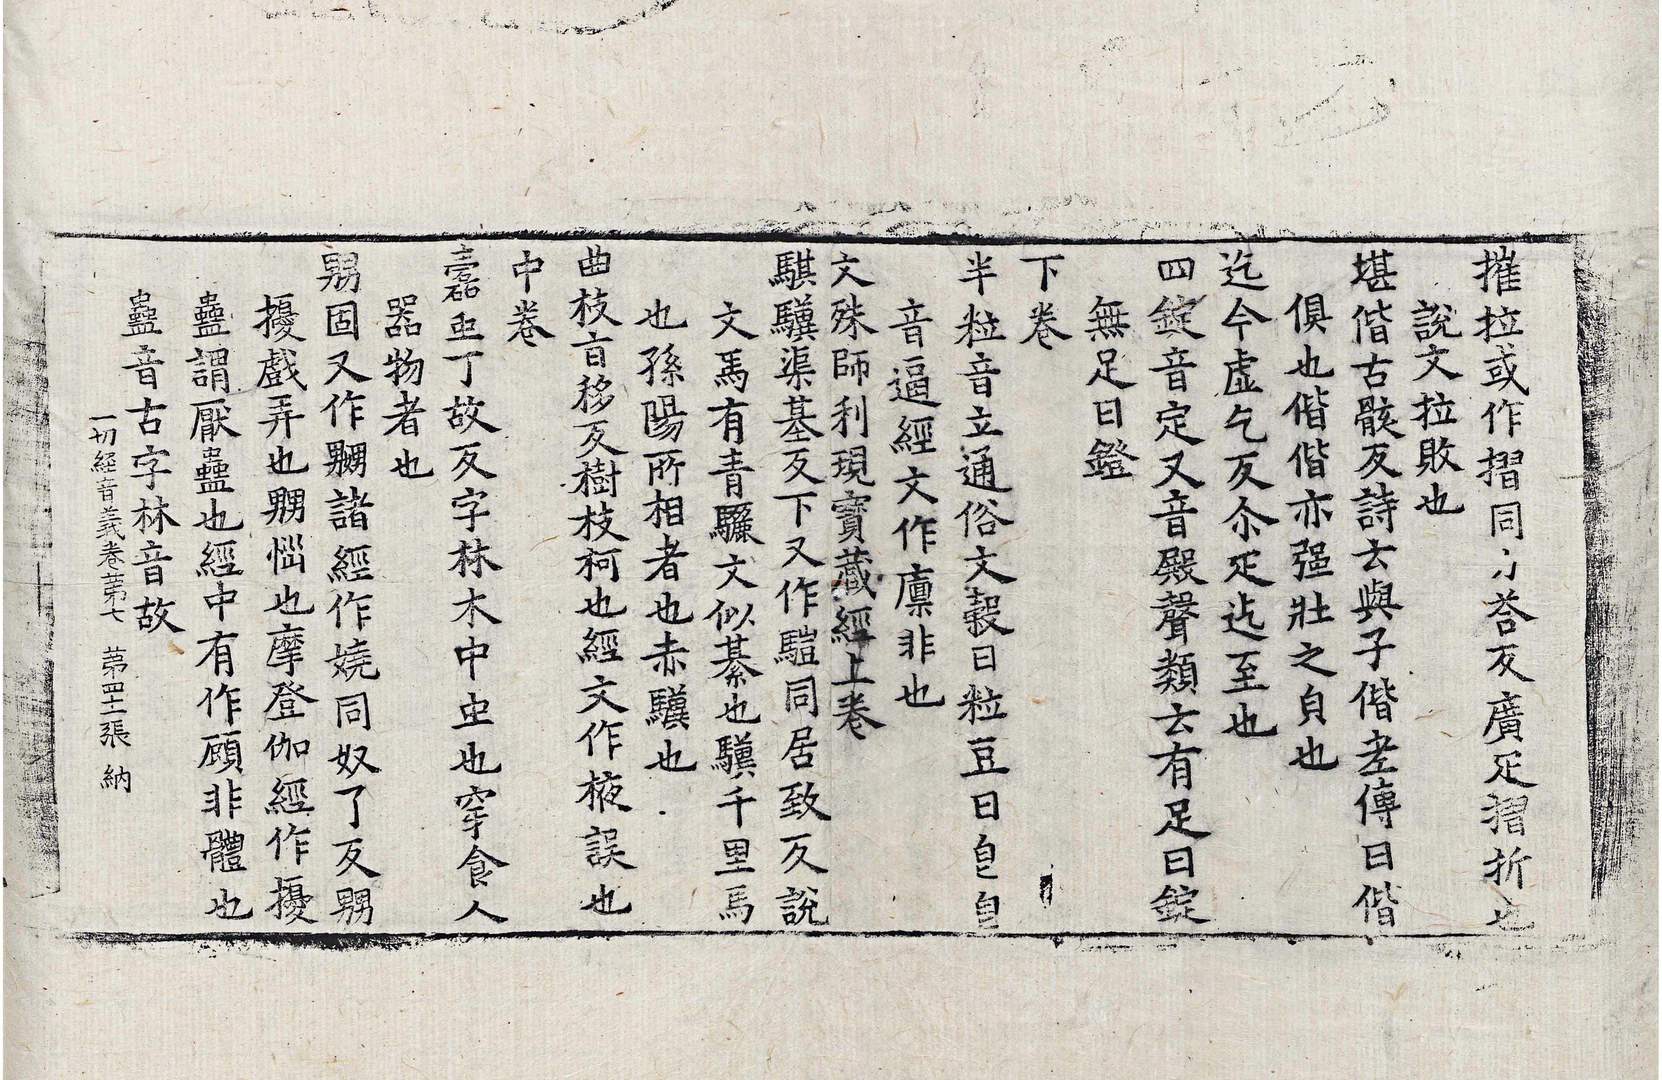 摧拉或作摺同力荅反廣疋摺折也
說文拉敗也
堪偕古骸反詩云與子偕老傳曰偕
俱也偕偕亦强壯之皃也
迄今虛乞反尒疋迄至也
四錠音定又音殿聲類云有足曰錠
無足曰鐙
下卷
半粒音立通俗文穀曰粒豆曰皀皀
音逼經文作廩非也
文殊師利現寶藏經上卷
騏驥渠基反下又作𩥉同居致反說
文馬有青驪文似綦也驥千里馬
也孫陽所相者也赤驥也
曲枝音移反樹枝柯也經文作椸誤也
中卷
蠹䖝丁故反字林木中䖝也穿食人
器物者也
嬲固又作嬲諸經作嬈同奴了反嬲
擾戲弄也嬲惱也摩登伽經作擾
蠱謂厭蠱也經中有作顧非體也
蠱音古字林音故
一切經音義卷苐七　苐四十二張　納